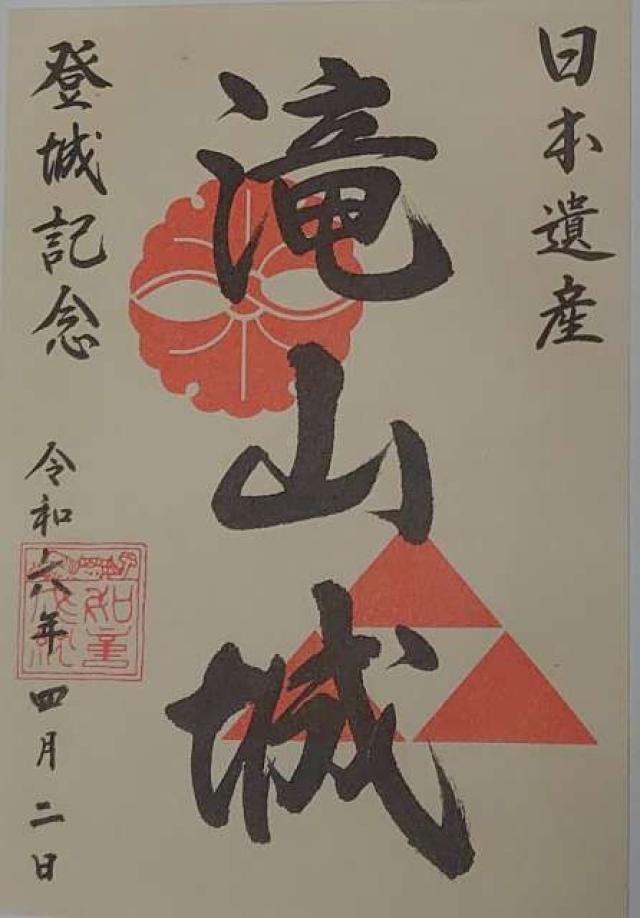 日本遺産
滝山城
登城記念
令和六年四月二日